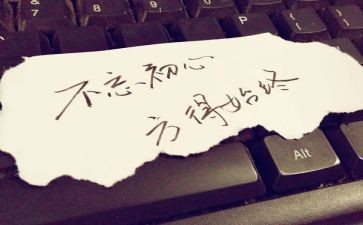 & 7
* 8
9
不忘初心
方得始终
Alt